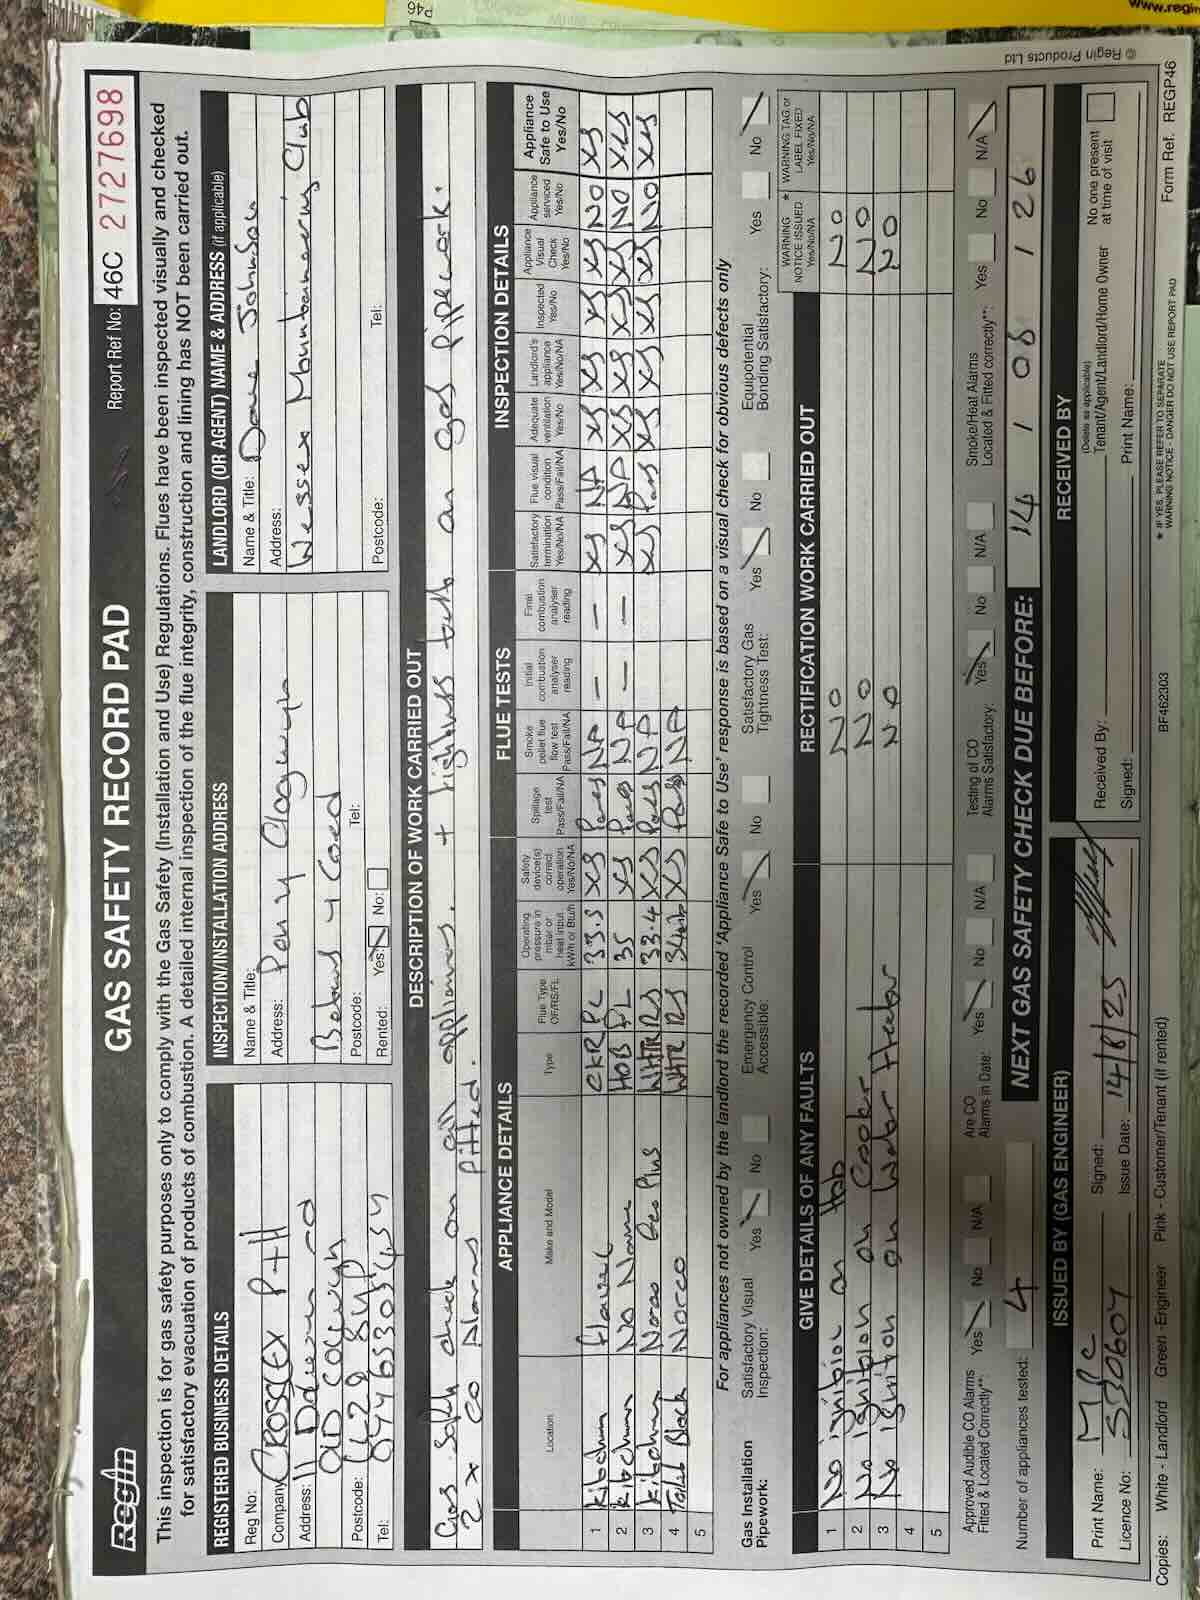 P46
www.regin
Regin
GAS SAFETY RECORD PAD
Report Ref No: 46C 2727698
This inspection is for gas safety purposes only to comply with the Gas Safety (Installation and Use) Regulations. Flues have been inspected visually and checked
for satisfactory evacuation of products of combustion. A detailed internal inspection of the flue integrity, construction and lining has NOT been carried out.
REGISTERED BUSINESS DETAILS
Reg No:
Company: CROSSLEY P+H
Address: 11
OLD COLWYN
Postcode: LL29 8YP
Tel:
INSPECTION/INSTALLATION ADDRESS
Name & Title:
Address: Pen y Clogwyn
Betws y Coed
Postcode: Tel:
Rented: Yes: No:
LANDLORD (OR AGENT) NAME & ADDRESS (if applicable)
Name & Title: Dave Johnson
Address:
Wessex Mountaineering Club
Postcode: Tel:
DESCRIPTION OF WORK CARRIED OUT
Gas safety check on all appliances. + tightness test on gas pipework.
2 x CO Alarms fitted.
APPLIANCE DETAILS FLUE TESTS INSPECTION DETAILS
Location Make and Model Type Flue Type OF/RS/FL Operating pressure in mbar or heat input kW/h or Btu/h Safety device(s) correct operation Yes/No/NA Spillage test Pass/Fail/NA Smoke pellet flue flow test Pass/Fail/NA Initial combustion analyser reading Final combustion analyser reading Satisfactory termination Yes/No/NA Flue visual condition Pass/Fail/NA Adequate ventilation Yes/No Landlord's appliance Yes/No/NA Inspected Yes/No Appliance Visual Check Yes/No Appliance serviced Yes/No Appliance Safe to Use Yes/No
1 Kitchen Flavel CKR FL 33.5 YES Pass NA — — YES NA YES YES YES YES NO YES
2 Kitchen No Name HOB FL 35 YES Pass NA — — YES NA YES YES YES YES NO YES
3 Kitchen Morco Geo Plus WHTR RS 33.4 YES Pass NA YES Pass YES YES YES YES NO YES
4 Toilet Block Morco WHTR RS YES Pass NA
5
For appliances not owned by the landlord the recorded 'Appliance Safe to Use' response is based on a visual check for obvious defects only
Gas Installation Pipework: Satisfactory Visual Inspection: Yes No Emergency Control Accessible: Yes No Satisfactory Gas Tightness Test: Yes No Equipotential Bonding Satisfactory: Yes No
GIVE DETAILS OF ANY FAULTS RECTIFICATION WORK CARRIED OUT WARNING NOTICE ISSUED Yes/No/NA * WARNING TAG or LABEL FIXED Yes/No/NA
1 No ignition on Hob NO NO
2 No ignition on Cooker NO NO
3 No ignition on Water Heater NO NO
4
5
Approved Audible CO Alarms Fitted & Located Correctly**: Yes No N/A Are CO Alarms in Date: Yes No N/A Testing of CO Alarms Satisfactory: Yes No N/A Smoke/Heat Alarms Located & Fitted correctly**: Yes No N/A
Number of appliances tested: 4 NEXT GAS SAFETY CHECK DUE BEFORE: 14 / 08 / 26
ISSUED BY (GAS ENGINEER) RECEIVED BY
Print Name: Signed:
Licence No: Issue Date: 14/8/25
(Delete as applicable)
Received By: Tenant/Agent/Landlord/Home Owner No one present at time of visit
Signed: Print Name:
Copies: White - Landlord Green -Engineer Pink - Customer/Tenant (if rented) BF462303
* IF YES, PLEASE REFER TO SEPARATE WARNING NOTICE - DANGER DO NOT USE REPORT PAD
Form Ref. REGP46
© Regin Products Ltd